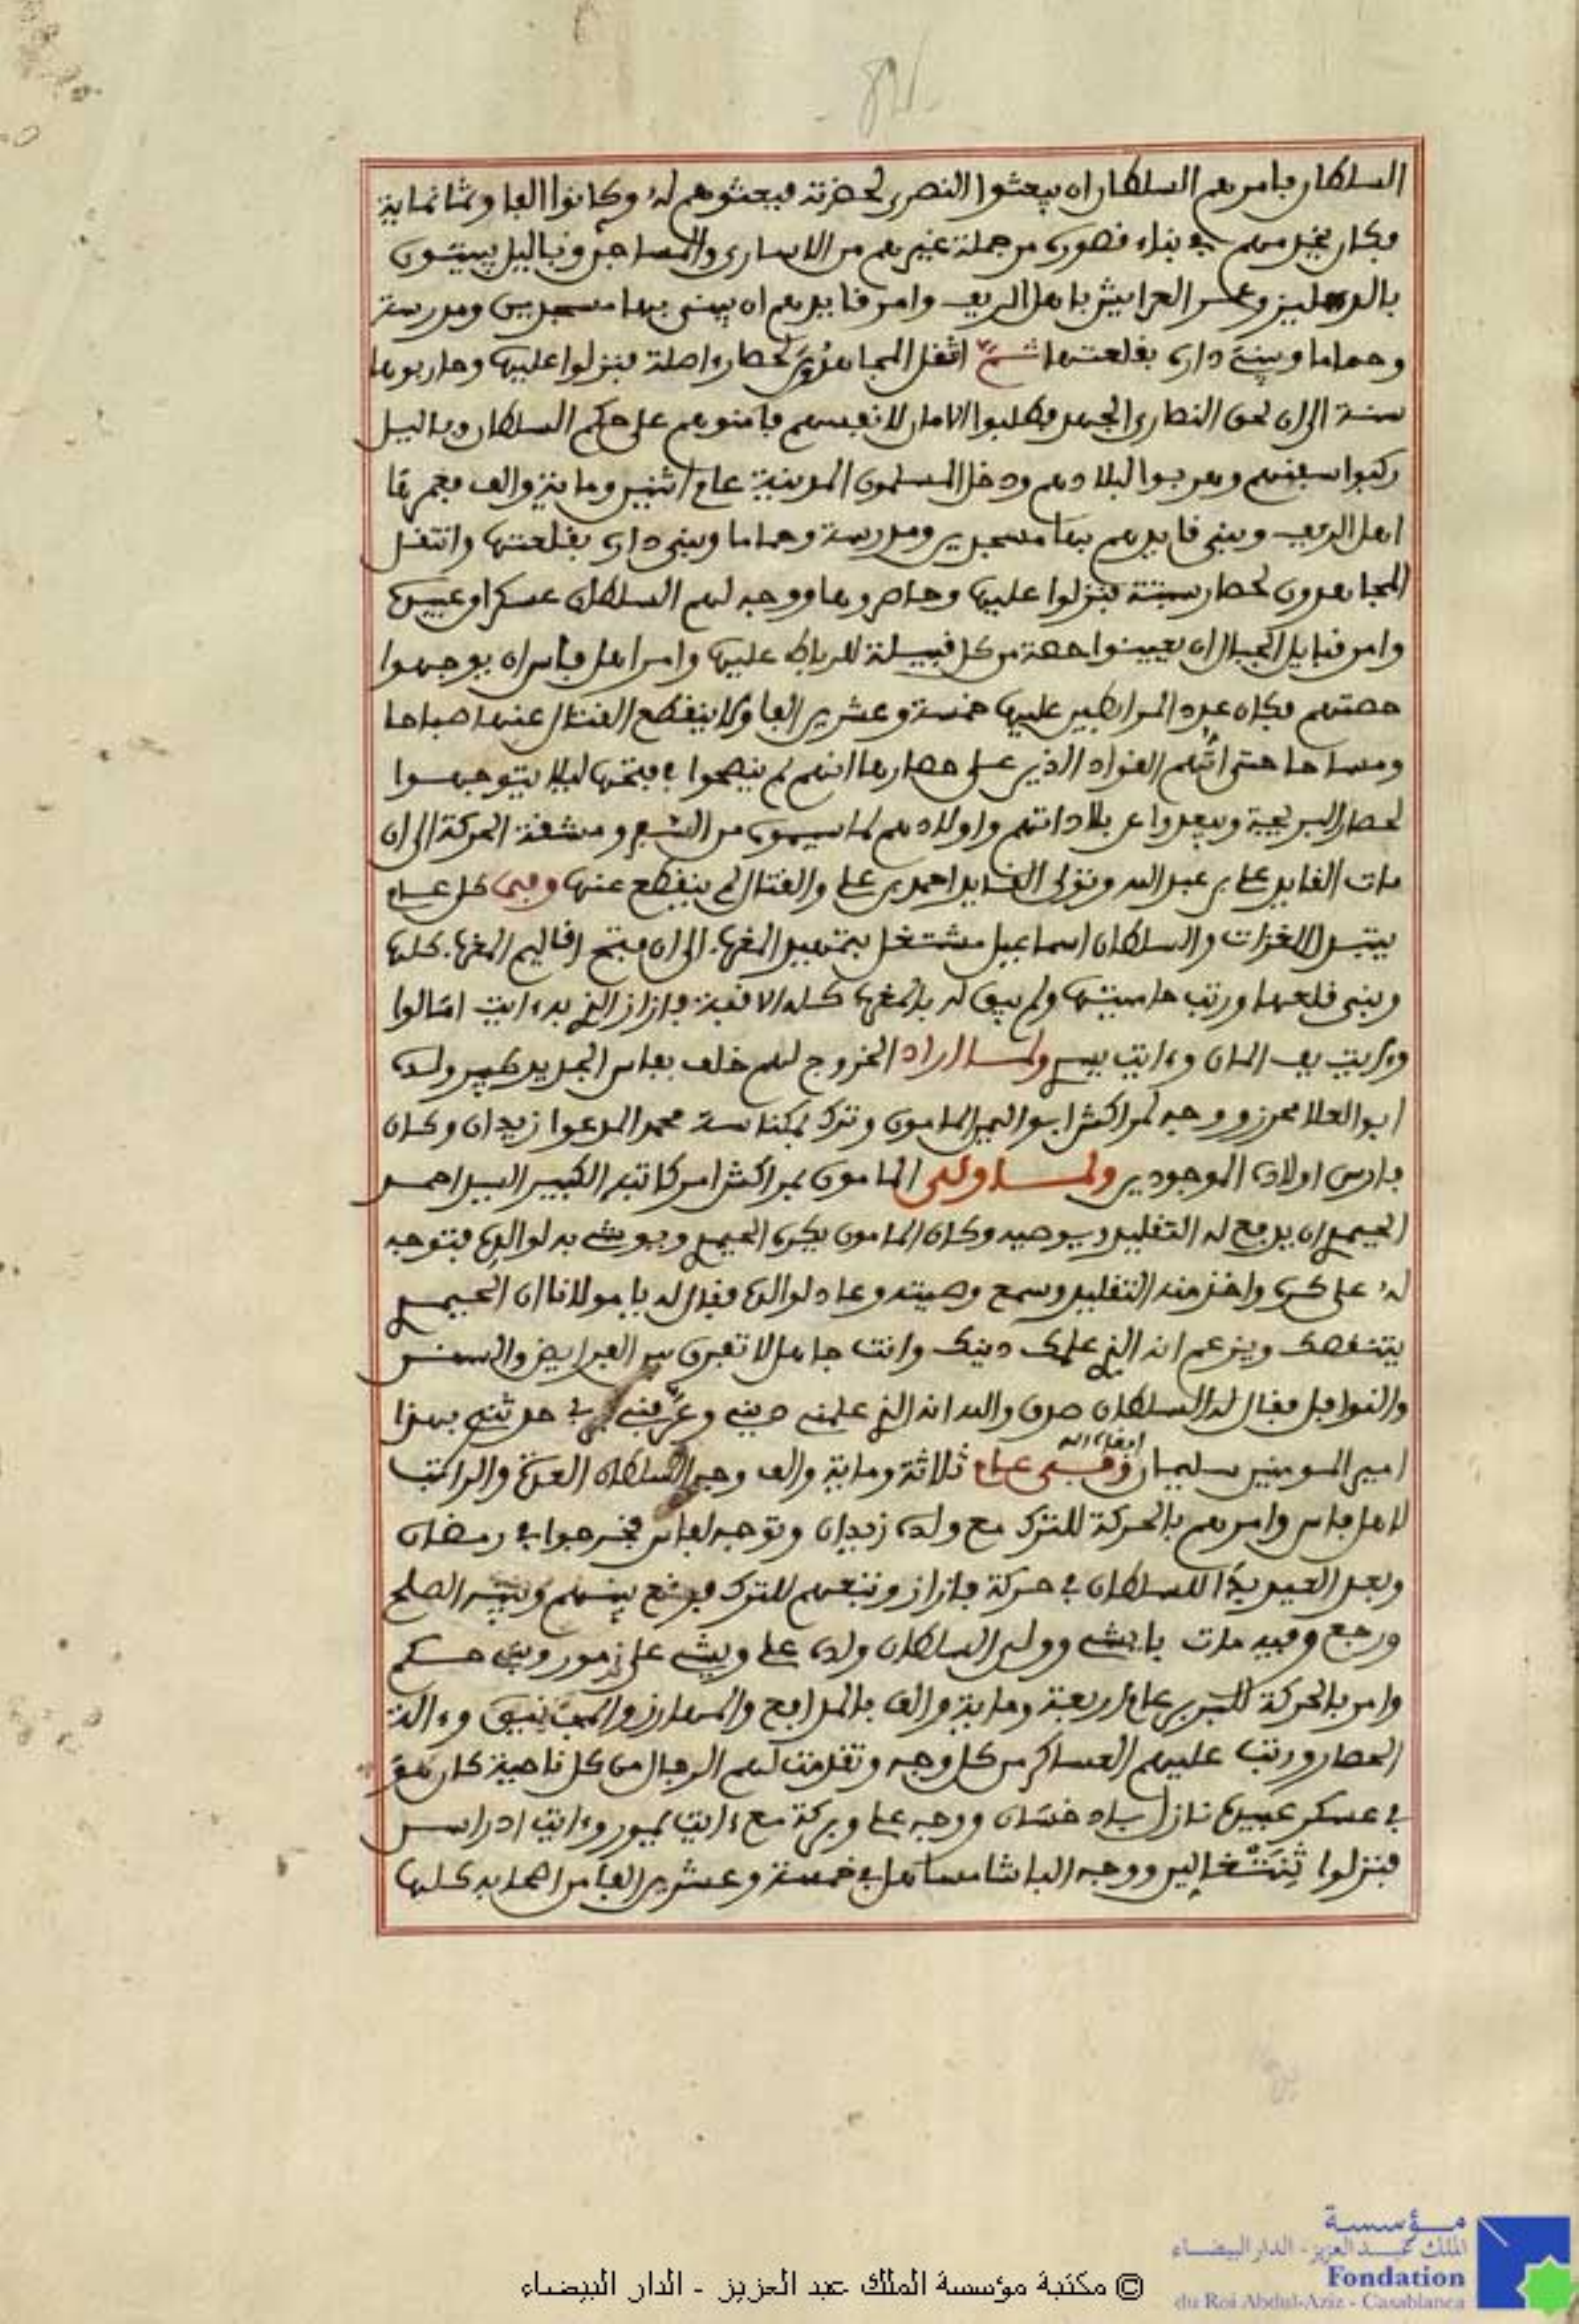 السلطان فامرهم السلطان ان يبعثوا النصرى لحضرته فبعثوهم له وكانوا الفا وثمانماية
فكان يخدمهم في بناء قصوره من جملة غيرهم من الاسارى والمساجن وباليل يبيتون
بالدهليز وعمر العرايش باهل الريف وامر قايدهم ان يبنى بها مسجدين ومدرسة
وحماما ويبنى داره بقلعتها ثم انتقل المجاهدون لحصار اصلة فنزلوا عليها وحاربوها
سنة الى ان لحق النصارى الجهد فطلبوا الامان لانفسهم فامنوهم على حكم السلطان وباليل
ركبوا سفنهم وهربوا لبلادهم ودخل المسلمون المدينة عام اثنين وماية والف فعمرها
اهل الريف وبنى قايدهم بها مسجدين ومدرسة وحماما وبنى داره بقلعتها وانتقل
المجاهدون لحصار سبتة فنزلوا عليها وحاصروها ووجه لهم السلطان عسكرا وعبيده
وامر قبايل الجبال ان يعينوا حصة من كل قبيلة للرباط عليها وامر اهل فاس ان يوجهوا
حصتهم فكان عدد المرابطين عليها خمسة وعشرين الفا ولا ينقطع القتال عنها صباحا
ومساحا حتى اتهم القواد الذين على حصارها انهم لم ينصحوا في فتحها ليلا يتوجهوا
لحصار البريجة ويبعدوا عن بلاداتهم واولادهم لما سيموه من السفر ومشقة الحركة الى ان
مات القايد على بن عبد الله وتولى القايد احمد بن على والقتال لم ينقطع عنها وفى كل عام
يتبدل الغزات والسلطان اسماعيل مشتغل بتمهيد المغرب الى ان فتح اقاليم المغرب كلها
وبنى قلعها ورتب حاميتها ولم يبق له بالمغرب كله الا قبة فازاز الذي به ءايت امالوا
وءايت يف المان وءايت ييسر ولما اراد الخروج لهم خلف بفاس الجديد كبير ولده
ابو العلا محرز ووجه لمراكش ابو اليمن المامون وترك بمكناسة محمد المدعوا زيدان وكان
فارس اولاده الموجودين ولما ولى المامون بمراكش امر كاتبه الكبير السيد احمد
اليحمدي ان يدفع له التقليد ويوصيه وكان المامون يكره اليحمدي ويوشي به لوالده فتوجه
له على كره واخذ منه التقليد وسمع وصيته وعاد لوالده فقال له يا مولانا ان اليحمدي
يتنقصك ويزعم انه الذي علمك دينك وانت جاهل لا تعرف بين الفرايض والسنن
والنوافل فقال له السلطان صدق والله انه الذي علمني ديني وعرفني بربي حدثني بهذا
امير المومنين سليمان ابقاه الله وفى عام ثلاثة وماية والف وجه السلطان العدة والراكب
لاهل فاس وامرهم بالحركة للترك مع ولده زيدان وتوجه لفاس فخرجوا في رمضان
وبعد العيد بدا للسلطان في حركة فازاز وتبعهم للترك فوقع بينهم وبينه الصلح
ورجع وفيه مات باشي وولى السلطان ولده على ويشي على زمور وبنى حكم
وامر بالحركة للبربر عام اربعة وماية والف بالمدافع والمهارز والمجانيق وءالة
الحصار ورتب عليهم العساكر من كل وجه وتقدمت لهم الرجال من كل ناحية كان هو
في عسكر عبيده نازل باد خسان ووجه على وبركة مع ءايت يمور وءايت ادراسن
فنزلوا تنتغالين ووجه الباشا مساهل في خمسة وعشرين الفا من اصحابه كلها
© مكتبة مؤسسة الملك عبد العزيز - الدار البيضاء
مؤسسة
الملك عبد العزيز - الدار البيضاء
Fondation
du Roi Abdul-Aziz - Casablanca